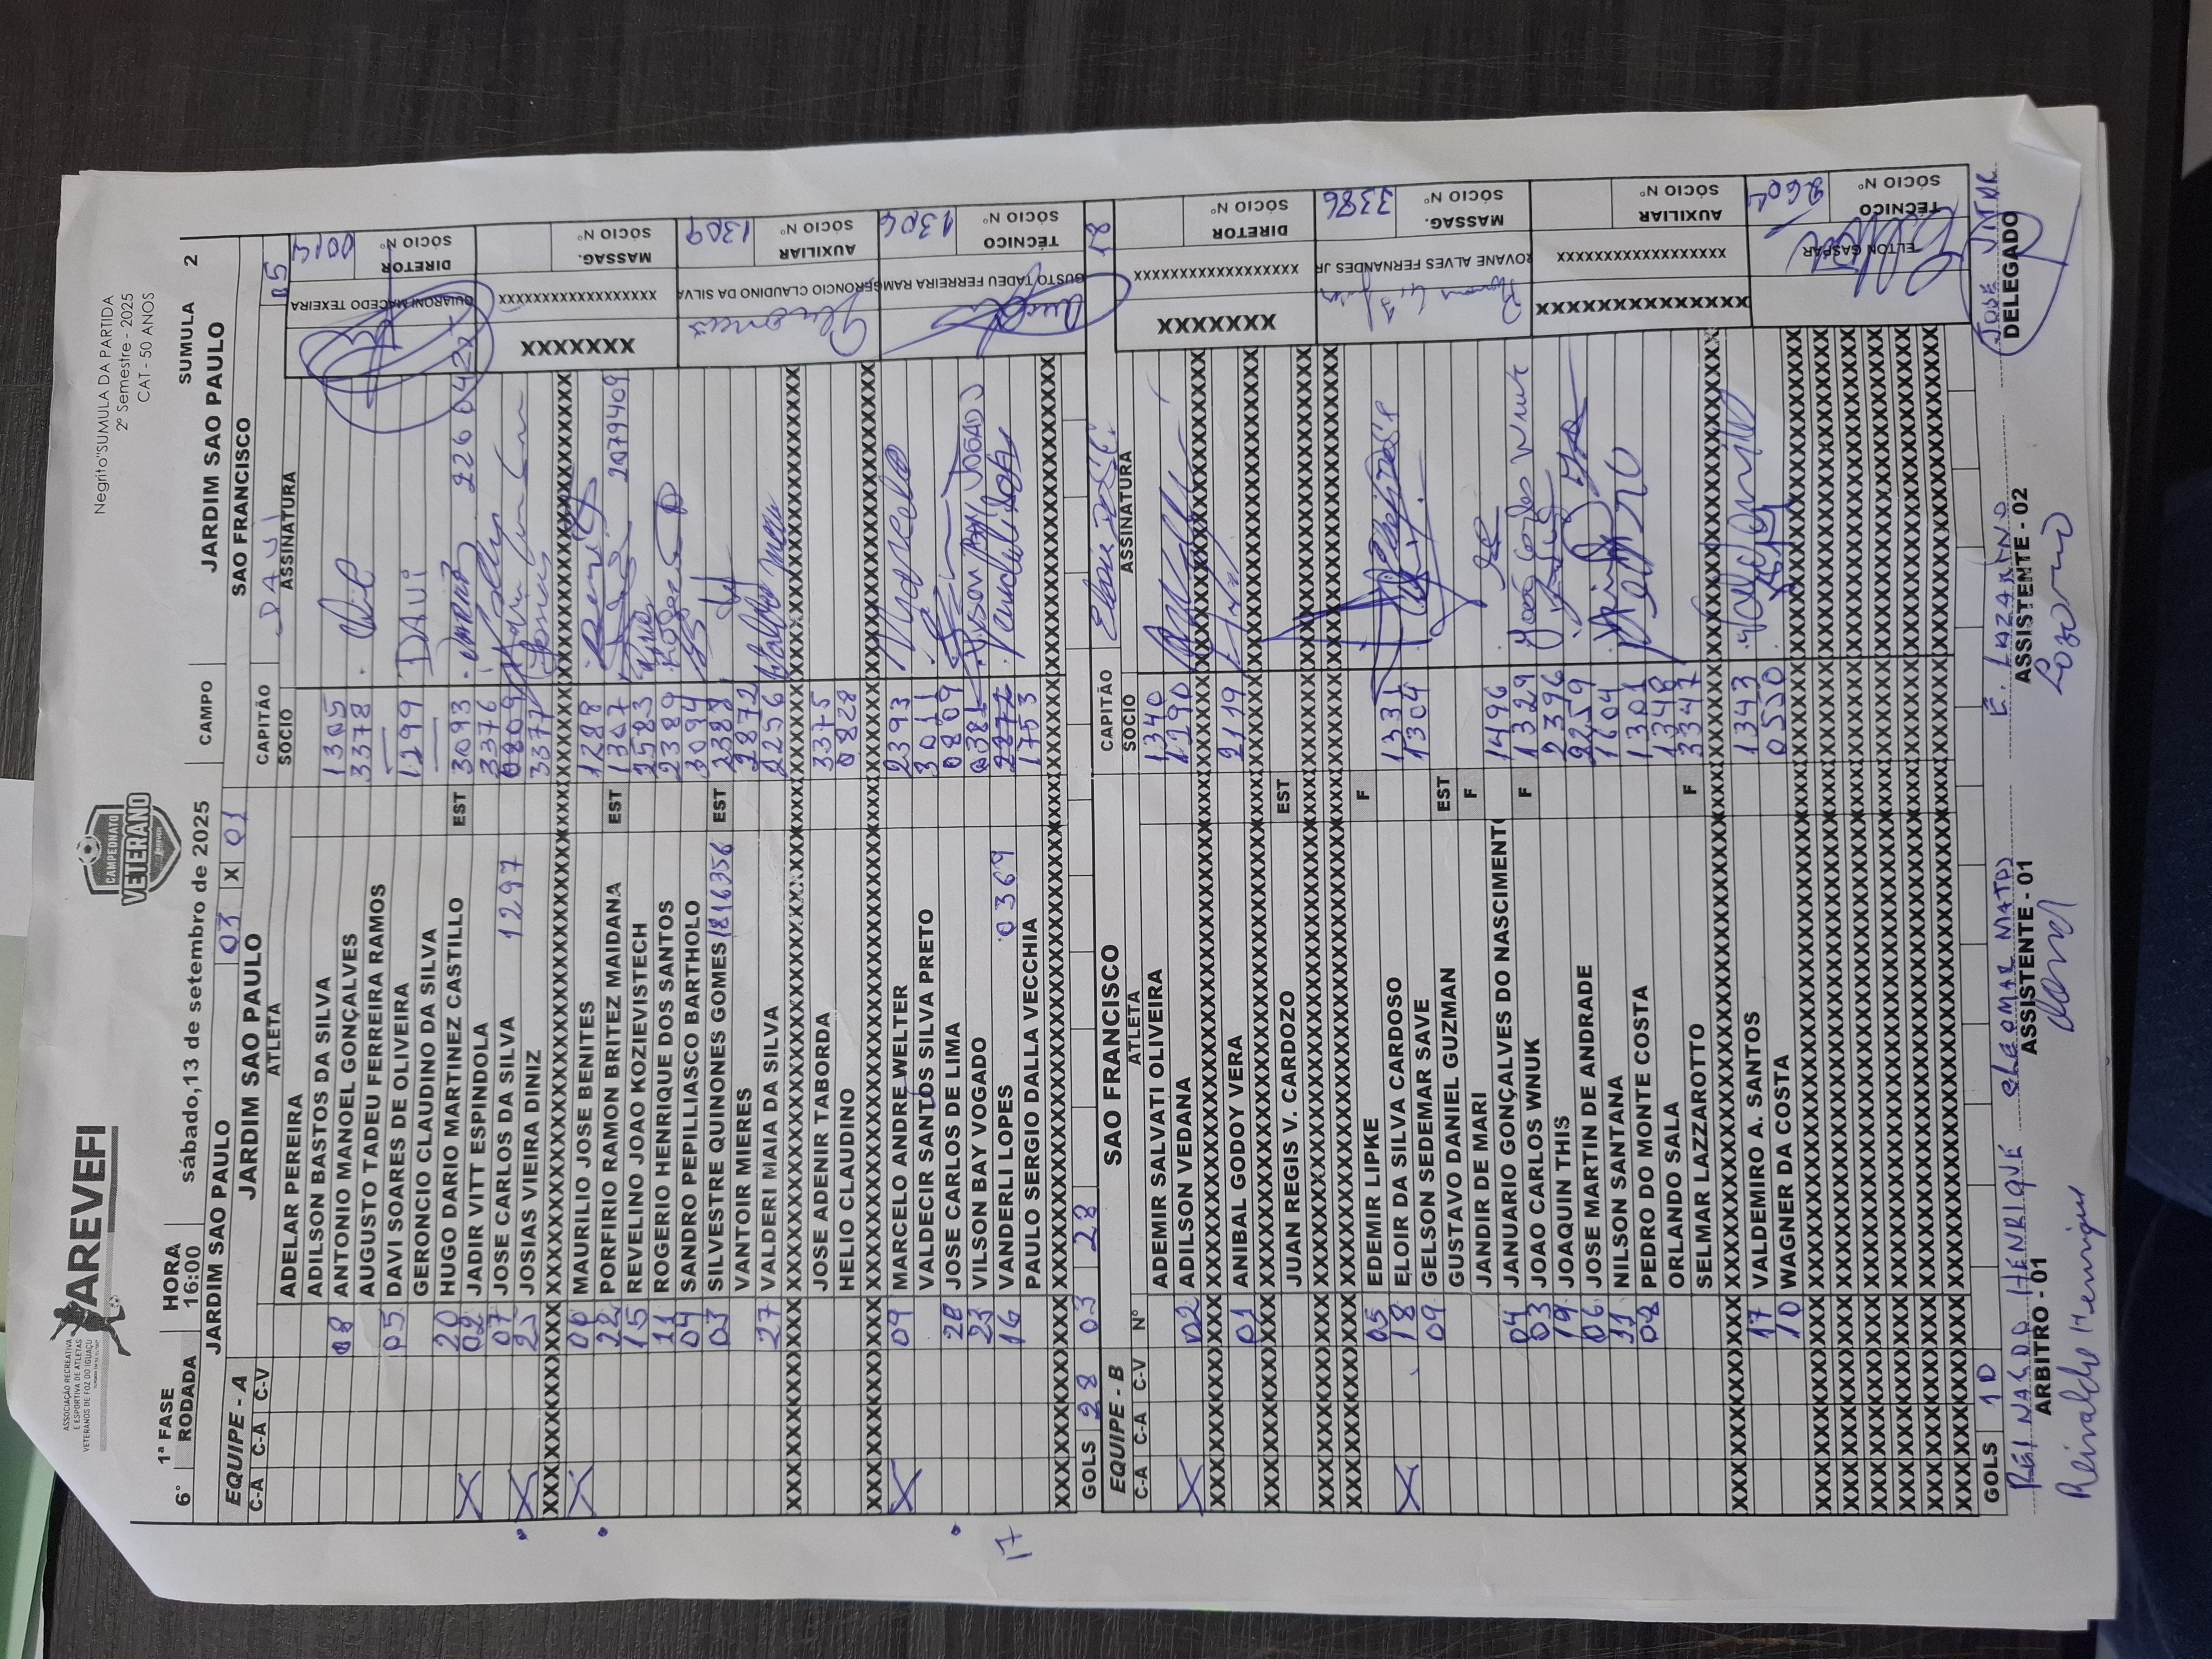 AREVEFI
ASSOCIAÇÃO RECREATIVA
E ESPORTIVA DE ATLETAS
VETERANOS DE FOZ DO IGUAÇU
CAMPEONATO
VETERANO
AREVEFI
Negrito"SUMULA DA PARTIDA
2º Semestre - 2025
CAT - 50 ANOS
6° 1ª FASE HORA sábado,13 de setembro de 2025 CAMPO JARDIM SAO PAULO SUMULA 2
RODADA 16:00
JARDIM SAO PAULO 03 X 01 SAO FRANCISCO
EQUIPE - A JARDIM SAO PAULO CAPITÃO DAVI 05
C-A C-A C-V ATLETA SOCIO ASSINATURA
ADELAR PEREIRA
ADILSON BASTOS DA SILVA 1305
08 ANTONIO MANOEL GONÇALVES 3378
AUGUSTO TADEU FERREIRA RAMOS
05 DAVI SOARES DE OLIVEIRA 1299 DAVI
GERONCIO CLAUDINO DA SILVA
X 20 HUGO DARIO MARTINEZ CASTILLO EST 3093
02 JADIR VITT ESPINDOLA 3376
07 JOSE CARLOS DA SILVA 1297 0809
X 25 JOSIAS VIEIRA DINIZ 3377
X 00 MAURILIO JOSE BENITES 1288
22 PORFIRIO RAMON BRITEZ MAIDANA EST 1307 2079409
15 REVELINO JOAO KOZIEVISTECH 2583
11 ROGERIO HENRIQUE DOS SANTOS 2389
04 SANDRO PEPILLIASCO BARTHOLO 3094
03 SILVESTRE QUINONES GOMES 1816356 EST 2388
VANTOIR MIERES 2872
27 VALDERI MAIA DA SILVA 2256
JOSE ADENIR TABORDA 3375
HELIO CLAUDINO 0828
X 09 MARCELO ANDRE WELTER 2393
VALDECIR SANTOS SILVA PRETO 3011
20 JOSE CARLOS DE LIMA 0809
23 VILSON BAY VOGADO 0381
16 VANDERLI LOPES 0369 2872
PAULO SERGIO DALLA VECCHIA 1753
17
GOLS 28 03 28
DIRETOR QUIARONI MACEDO TEXEIRA SÓCIO Nº 0014
MASSAG. XXXXXXX SÓCIO Nº
AUXILIAR GERONCIO CLAUDINO DA SILVA SÓCIO Nº 1309
TÉCNICO GUSTO TADEU FERREIRA RAM SÓCIO Nº 1304
EQUIPE - B SAO FRANCISCO CAPITÃO 18
C-A C-A C-V Nº ATLETA SOCIO ASSINATURA
ADEMIR SALVATI OLIVEIRA 1340
X 02 ADILSON VEDANA 1290
01 ANIBAL GODOY VERA 2119
JUAN REGIS V. CARDOZO EST
05 EDEMIR LIPKE F
X 18 ELOIR DA SILVA CARDOSO 1331
09 GELSON SEDEMAR SAVE 1304
GUSTAVO DANIEL GUZMAN EST
JANDIR DE MARI F
04 JANUARIO GONÇALVES DO NASCIMENTO 1496
03 JOAO CARLOS WNUK F 1329 João Carlos Wnuk
19 JOAQUIN THIS 2396
06 JOSE MARTIN DE ANDRADE 2259
11 NILSON SANTANA 1604
08 PEDRO DO MONTE COSTA 1301
ORLANDO SALA 1348
SELMAR LAZZAROTTO F 3347
17 VALDEMIRO A. SANTOS 1343
10 WAGNER DA COSTA 0530
GOLS 10
DIRETOR XXXXXXX SÓCIO Nº
MASSAG. ROVANE ALVES FERNANDES JR SÓCIO Nº 3386
AUXILIAR XXXXXXXXXXXXXX SÓCIO Nº
TÉCNICO ELTON GASPAR SÓCIO Nº 2604
REINALDO HENRIQUE E. LAZARINO JOSE VITOR
ARBITRO - 01 ASSISTENTE - 01 ASSISTENTE - 02 DELEGADO
Reinaldo Henrique